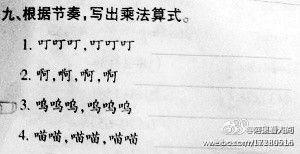 九、根据节奏,写出乘法算式。
1. 叮叮叮,叮叮叮
2. 啊,啊,啊,啊
3. 呜呜呜,呜呜呜
4. 喵喵,喵喵,喵喵
weibo.com/17280516